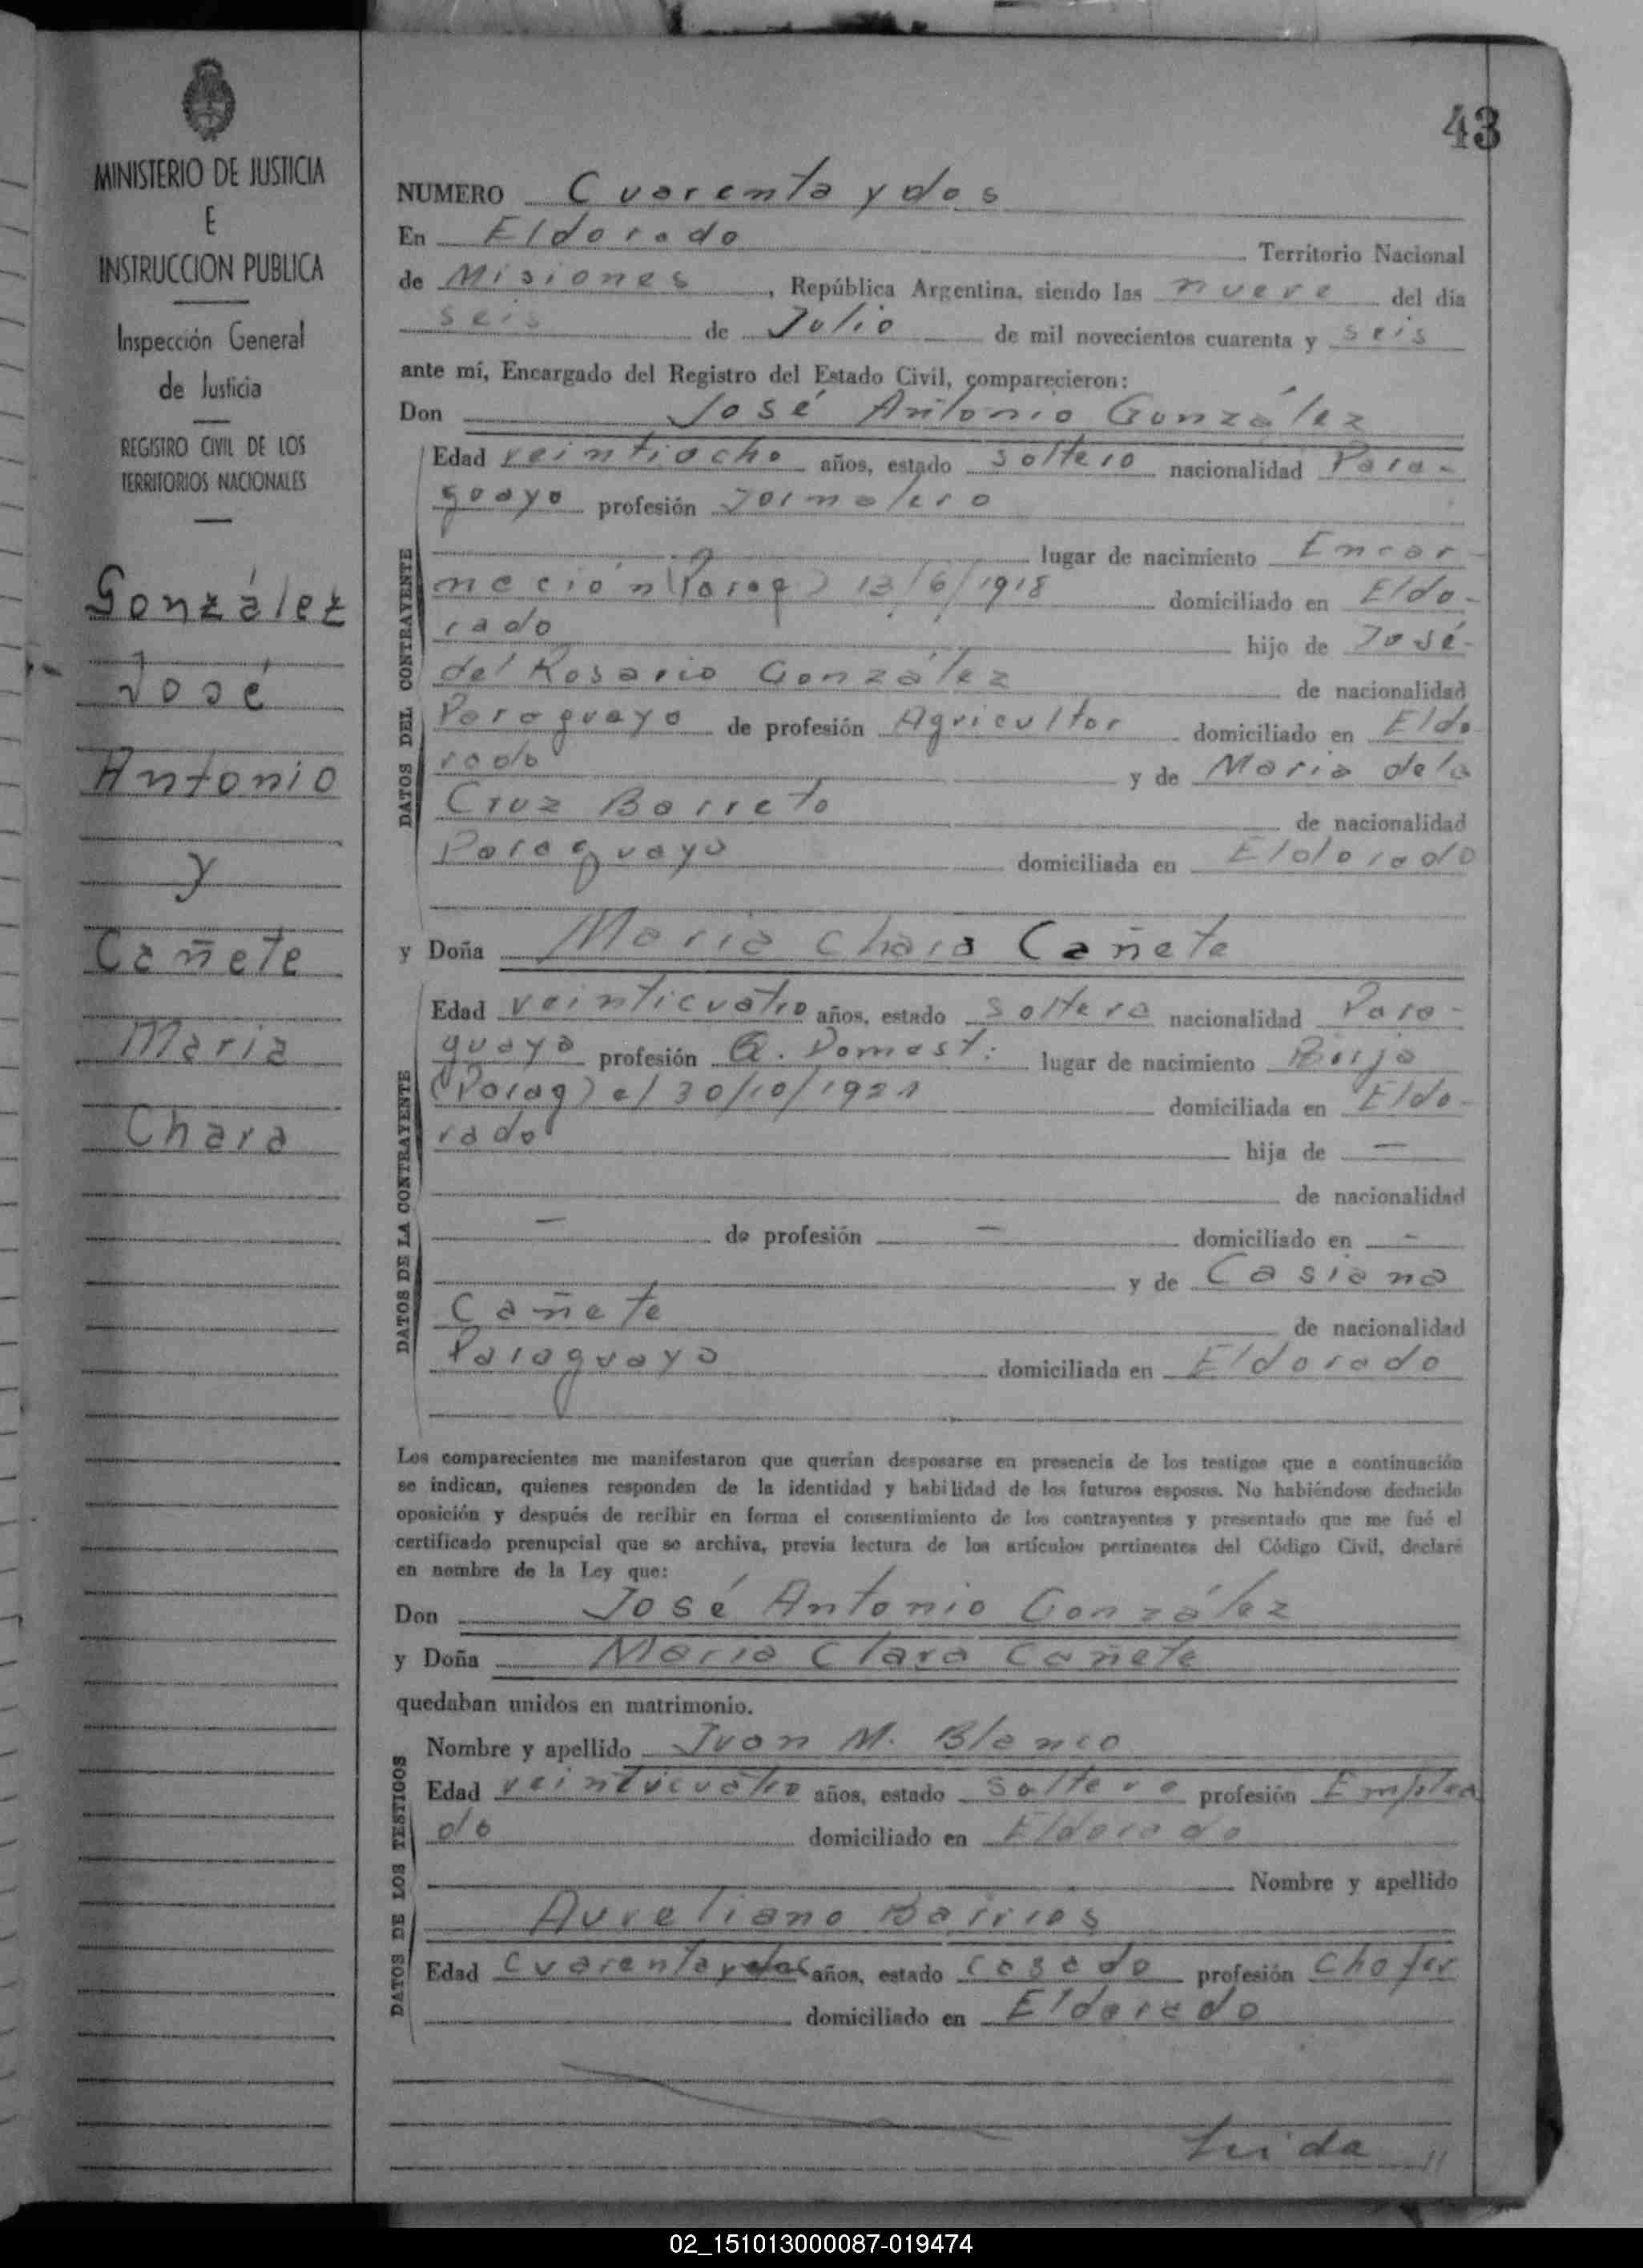 MINISTERIO DE JUSTICIA
E
INSTRUCCION PUBLICA
Inspección General
de Justicia
REGISTRO CIVIL DE LOS
TERRITORIOS NACIONALES
González
José
Antonio
y
Cañete
Maria
Chara
43
NUMERO Cuarenta y dos
En Eldorado Territorio Nacional
de Misiones, República Argentina, siendo las nueve del día
seis de Julio de mil novecientos cuarenta y seis
ante mí, Encargado del Registro del Estado Civil, comparecieron:
Don José Antonio González
DATOS DEL CONTRAYENTE
Edad veintiocho años, estado soltero nacionalidad Para-
guayo profesión Jornalero
lugar de nacimiento Encar-
nación (Parag) 13/6/1918 domiciliado en Eldo-
rado hijo de José
del Rosario González de nacionalidad
Paraguayo de profesión Agricultor domiciliado en Eldo
rado y de Maria de la
Cruz Barreto de nacionalidad
Paraguaya domiciliada en Eldorado
y Doña Maria Chara Cañete
DATOS DE LA CONTRAYENTE
Edad veinticuatro años, estado soltera nacionalidad Para-
guaya profesión Q. Domest: lugar de nacimiento Borja
(Parag) el 30/10/1921 domiciliada en Eldo-
rado hija de —
de nacionalidad
— de profesión — domiciliado en —
y de Casiana
Cañete de nacionalidad
Paraguaya domiciliada en Eldorado
Los comparecientes me manifestaron que querían desposarse en presencia de los testigos que a continuación
se indican, quienes responden de la identidad y habilidad de los futuros esposos. No habiéndose deducido
oposición y después de recibir en forma el consentimiento de los contrayentes y presentado que me fué el
certificado prenupcial que se archiva, previa lectura de los artículos pertinentes del Código Civil, declaré
en nombre de la Ley que:
Don José Antonio González
y Doña Maria Clara Cañete
quedaban unidos en matrimonio.
DATOS DE LOS TESTIGOS
Nombre y apellido Juan M. Blanco
Edad veinticuatro años, estado soltero profesión Emplea
do domiciliado en Eldorado
Nombre y apellido
Aureliano Barrios
Edad cuarenta y dos años, estado casado profesión Chofer
domiciliado en Eldorado
Leida //
02_151013000087-019474